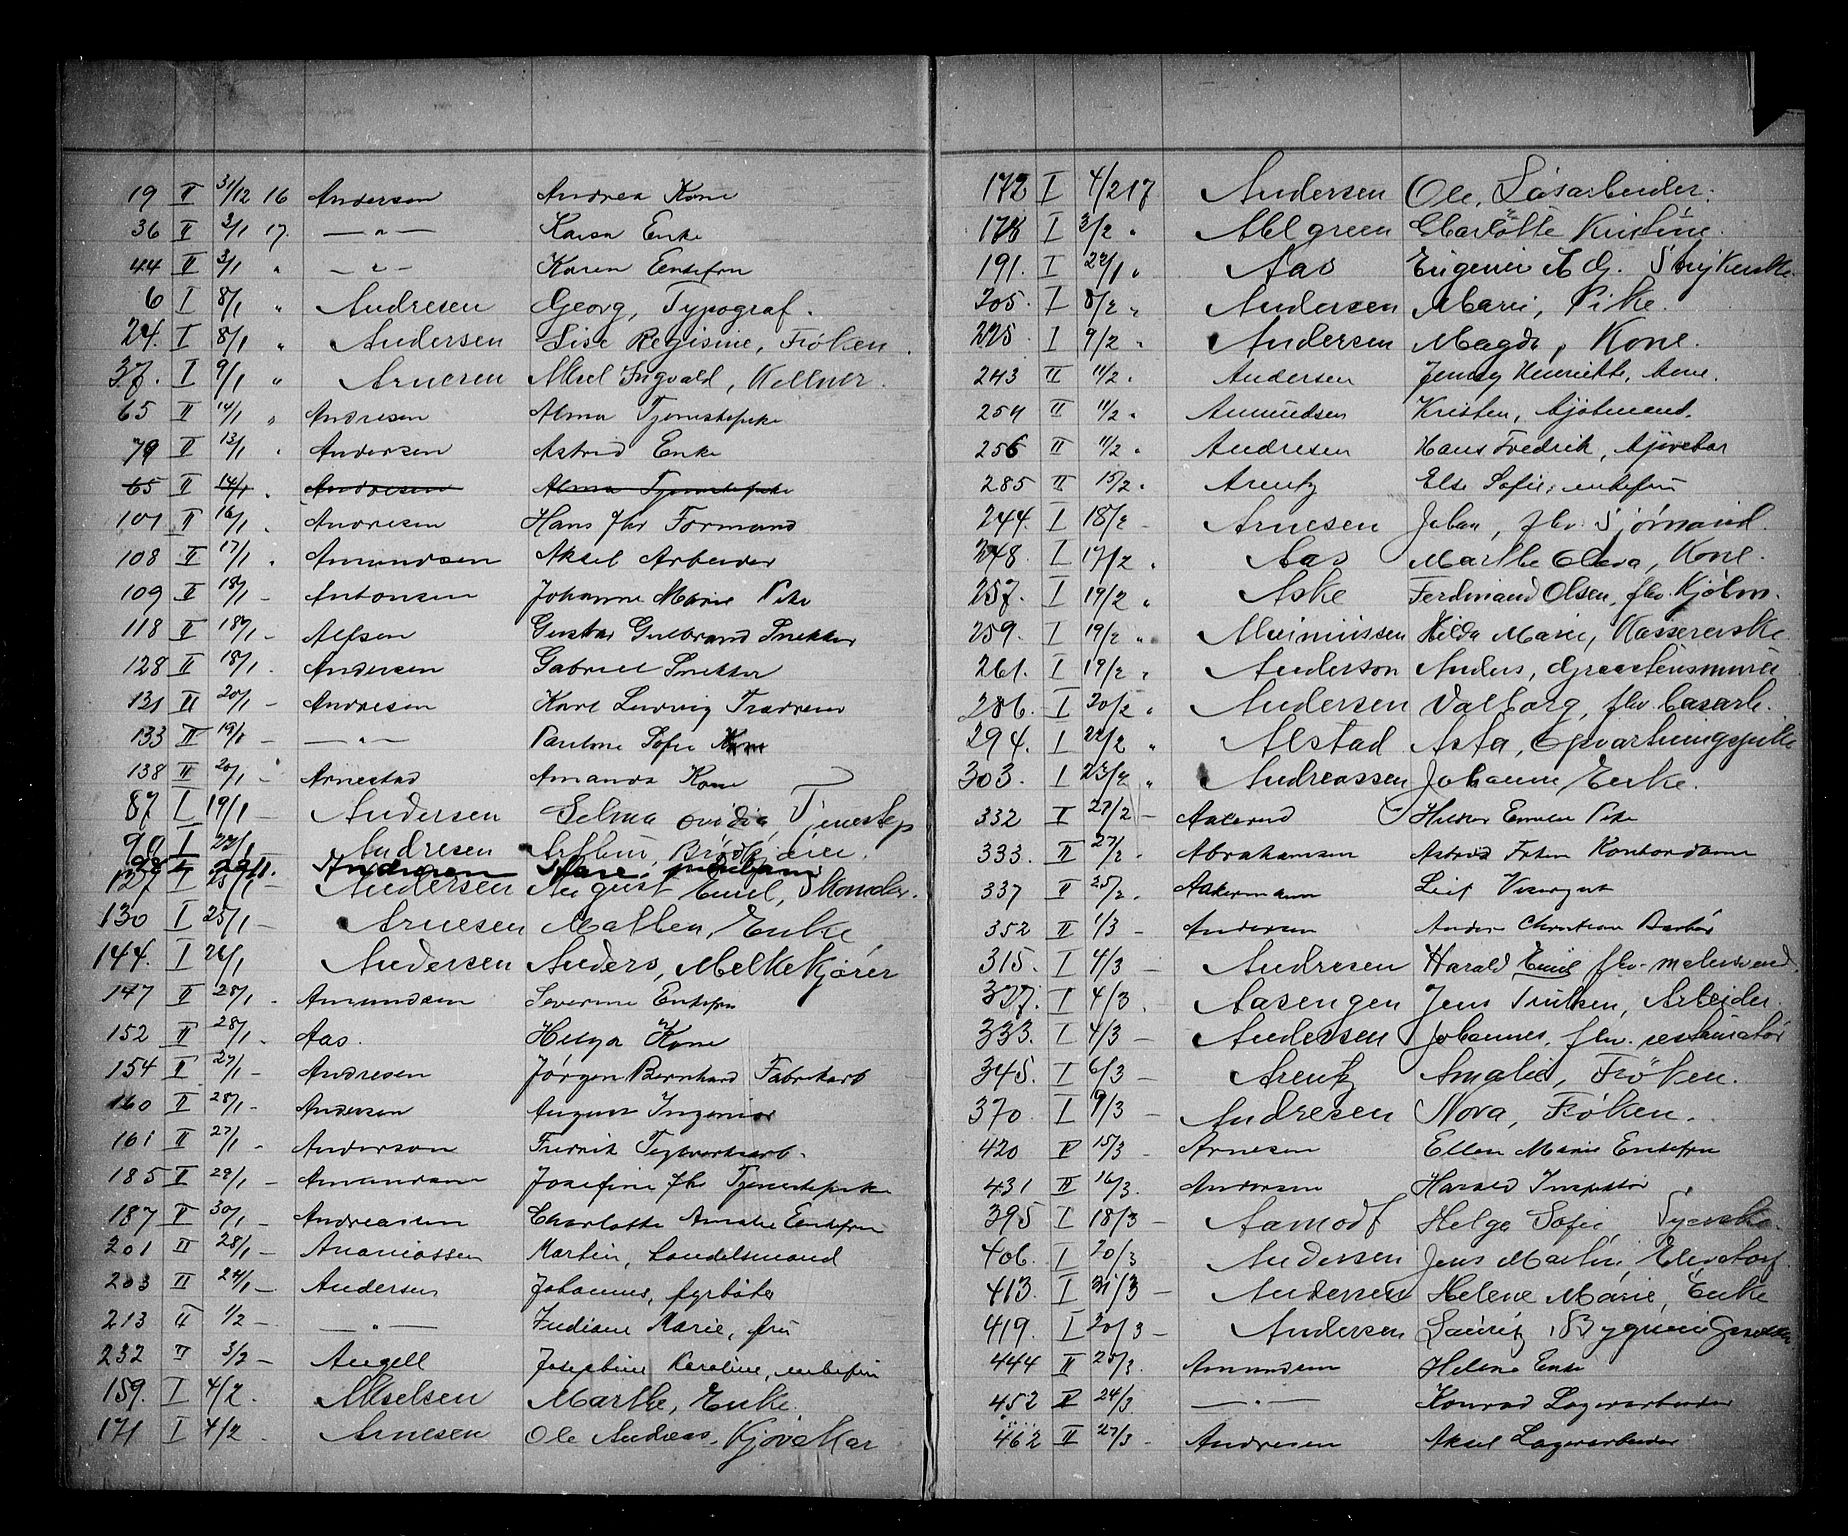 19 II 31/12 16 Anderson Andrea Kone
36 II 2/1 17. —〃— Karen Enke
44 II 3/1 〃 —〃— Karen Enkefru
6 I 8/1 〃 Andresen Georg, Typograf.
24. I 8/1 〃 Andersen Lise Regisine, Frøken.
37. I 9/1 〃 Arnesen Aksel Ingvald, Kellner.
65 II 14/1 〃 Andresen Alma Tjenestepike
79 II 13/1 〃 Andersen Astrid Enke
65 II 14/1 〃 Andresen Alma Tjenestepike
101 II 16/1 〃 Andresen Hans Jhs Formand
108 II 17/1 〃 Amundsen Aksel Arbeider
109 II 18/1 - Antonsen Johanne Marie Pike
118 II 18/1 - Alfsen Gustav Gulbrand Snekker
128 II 18/1 - Andersen Gabriel Snekker
131 II 20/1 - Andresen Karl Ludvig
133 II 19/1 - —〃— Pauline Sofie Kone
138 II 20/1 - Arnestad Amanda Kone
87 I 19/1 - Andersen Selma Ovidia, Tjenestep
90 I 22/1 Andresen Arthur,
98 I 22/1. Andresen
127 I 25/1 - Andersen August Emil, Skomaker.
130 I 25/1 - Arnesen Mathea, Enke,
144. I 26/1 Andersen Anders, Melkekjører
147 II 28/1 - Amundsen Severine Enkefru
152 II 28/1 - Aas. Helga Kone
154 II 27/1 - Andresen Jørgen Bernhard Fabrikarb
160 II 28/1 - Andersen August Ingeniør
161 II 27/1 - Anderson Fredrik Teglverksarb.
185 II 29/1 - Amundsen Josefine Jhs Tjenestepike
187 II 30/1 - Andreasen Charlotte Amalie Enkefru
201 II 28/1 - Ananiassen Martin, Handelsmand
203 II 24/1 - Andersen Johannes, fyrbøter
213 II 1/2 - —〃— Indiane Marie, fru
232 II 3/2 - Angell Josephine Karoline, enkefru
159. I 4/2. Akselsen Marthe, Enke.
171 I 4/2 . Arnesen Ole Andreas, Kjøremar
172 I 4/2 17. Andersen Ole, Løsarbeider.
178 I 3/2 〃 Ahlgreen Charlotte Kristine.
191. I 22/1 〃 Aas Eugenie Strykerske.
205. I 8/2 〃 Andersen Marie, Pike.
225 I 9/2 〃 Andersen Magda, Kone.
243 II 11/2 〃 Andersen Jenny Henriette, Kone.
254 II 11/2 〃 Amundsen Kristen, Kjøbmand.
256 II 11/2 〃 Andresen Hans Fredrik,
285 II 15/2 〃 Arentz Else Sofie, enkefru
244. I 18/2 - Arnesen Johan, fhv. Sjømand.
248. I 17/2 〃 Aas Marthe Olava, Kone.
257. I 19/2 〃 Aske Ferdinand Olsen, fhv. Kjøbm.
259. I 19/2 〃 Hilda Marie, Kassererske
261. I 19/2 〃 Anderson Anders, Graastensmurer
286. I 20/2 〃 Andersen Valborg, fhv.
294. I 22/2 〃 Alstad Asta, Opvartningspike
303. I 23/2 〃 Andreassen Johanne Enke.
332 II 27/2 - Aakerud Pike
333. II 27/2 - Abrahamsen Astrid Kontordame
337 II 25/2. Aakermann Leif Visergut
352 II 1/3 - Andersen Anders Christian Barbér
315. I 4/3 - Andresen Harald Emil fhv.
327. I 4/3. Aasengen Jens Trulsen, Arbeider.
333. I 4/3 - Andersen Johannes, fhv. restauratør
345. I 6/3 - Arentz Amalie, Frøken.
370. I 9/3 - Andresen Nora, Frøken.
420 II 15/3 - Arnesen Ellen Marie Enkefru
431 II 16/3. Andersen Harald Inspektør
395 I 18/3 - Aamodt Helga Sofie Syerske.
406. I 20/3 Andersen Jens Martin,
413. I 21/3 - Andersen Helene Marie, Enke
419. I 20/3 - Andersen Lauritz, Bygnings
444 II 25/3. Amundsen Helene Enke
452 II 24/3 —〃— Konrad Lagerarbeider
462 II 27/3 - Andresen Aksel Lagerarbeider